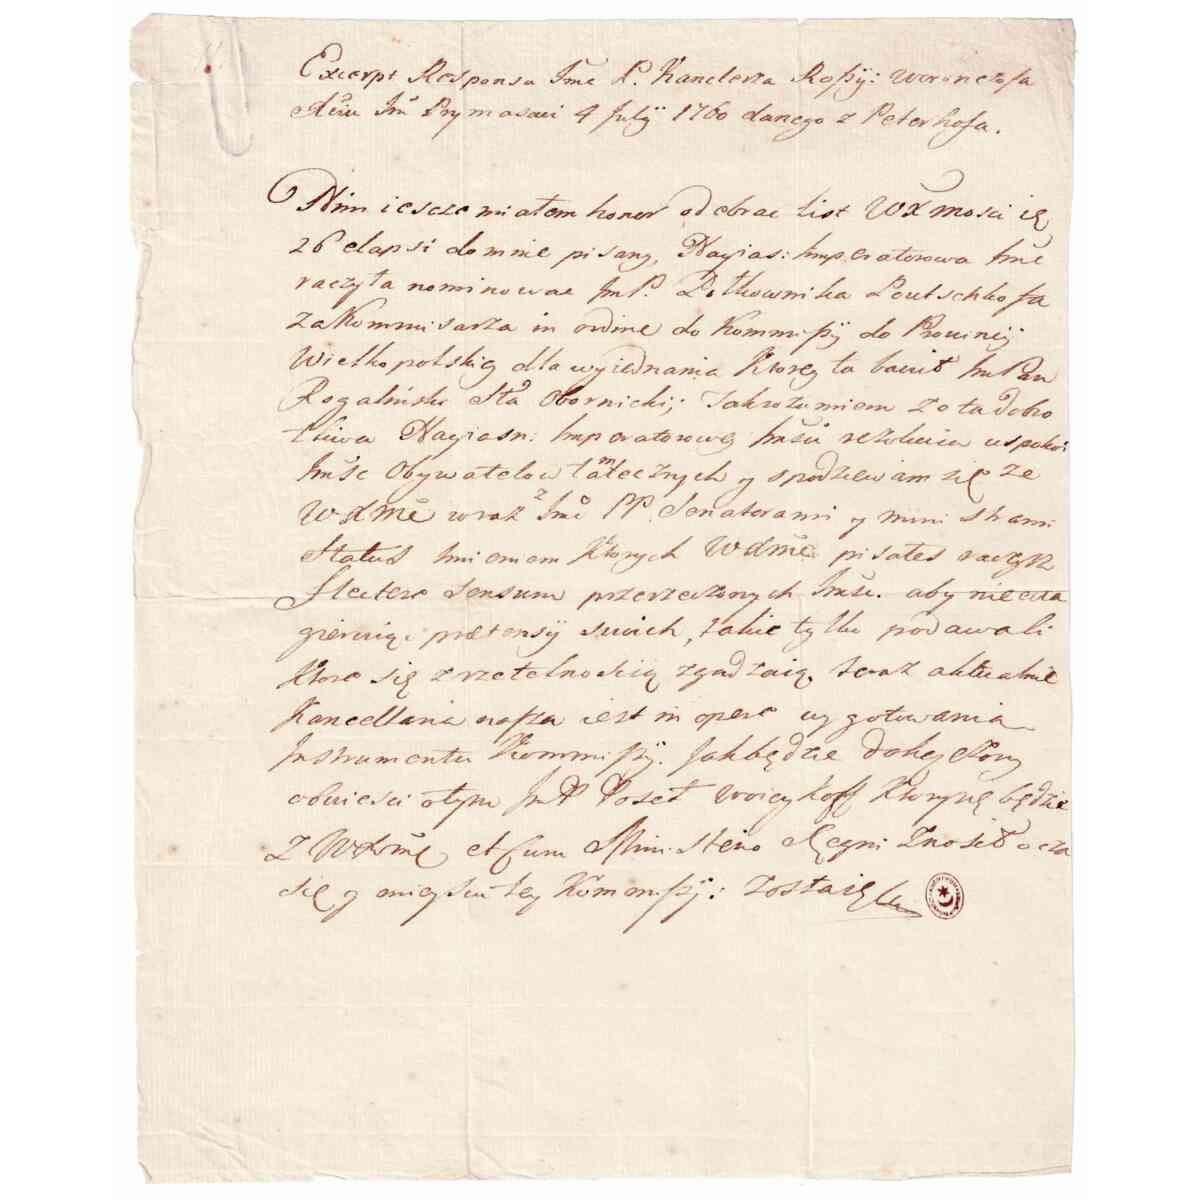 Excerpt Responsu Jmć P. Kanclerza Rossyi: Woronczofa
Xciu Jm Prymasowi 4 Julÿ 1760 danego z Peterhofa.
Nim ieszcze miałem honor odebrac list WXmości ię
26 elapsi do mnie pisany, Nayias: Imperatorowa Jmć
raczyła nominowac JmP. Połkownika Poutschkofa
za Kommisarza in ordine do Kommissÿ do Prowincÿ
Wielkopolskię dla wyiednania Ktorey tu bawił JmPan
Rogaliński Sta Obornicki; Jakrozumiem ze ta dobro
tliwa Nayiasn: Imperatorowę Jmści rezolucia uspokoi
Jmśc Obywatelow tamecznych y spodziewam się ze
WXMć wraz z Jmć PP. Senatorami y ministrami
Status imieniem Ktorych WXMć pisałes raczysz
flectere sensum przerzeczonych Jmść. aby nieexa
gieruiąc pretensÿ swoich, takie tylko podawali
Ktore się z rzetelnoscią zgadzaią. teraz aktualnie
Kancellaria nasza iest in opere wygotowania
Instrumentu Kommissÿ. Jak będzie dokonczony
obwiesci o tym JmP Poseł Woieykoff Ktory się będzie
z WXMę et cum Ministerio Regni Znosił o cza
się y mieyscu tey Kommissÿ: zostaię